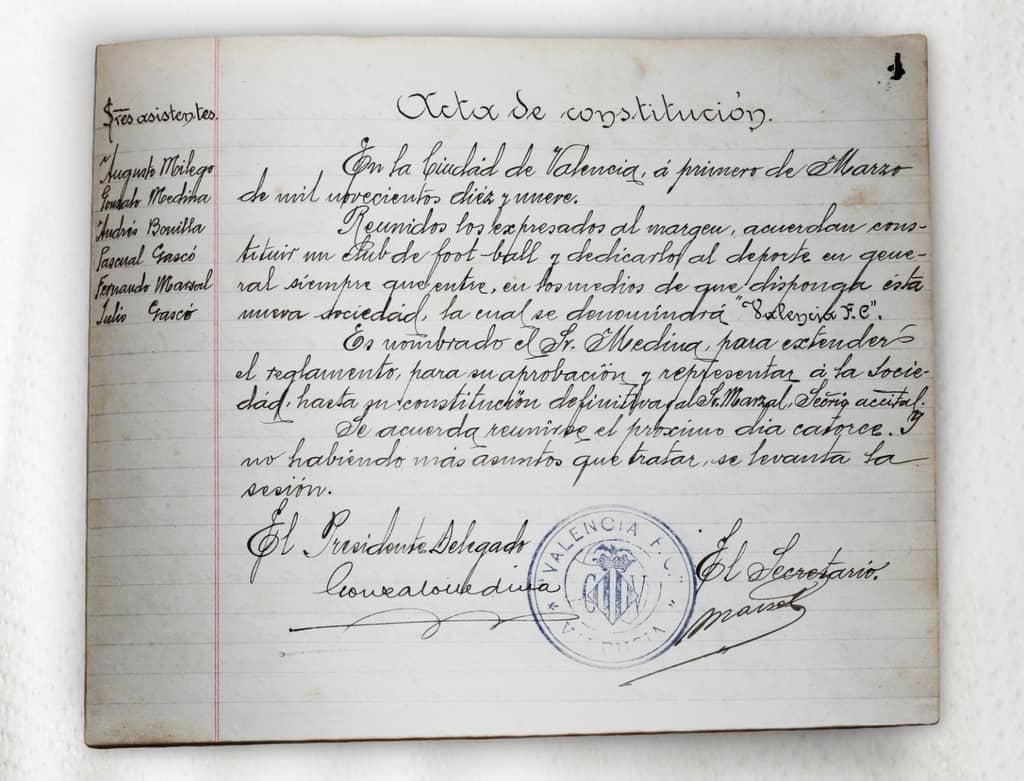 1
Sres asistentes.
Augusto Milego
Gonzalo Medina
Andrés Bonilla
Pascual Gascó
Fernando Marzal
Julio Gascó
Acta de constitución.
En la Ciudad de Valencia, á primero de Marzo
de mil novecientos diéz y nueve.
Reunidos los expresados al margen, acuerdan cons-
tituir un Club de foot-ball y dedicarlo al deporte en gene-
ral siempre que entre, en los medios de que disponga ésta
nueva sociedad, la cual se denomindrá "Valencia F.C".
Es nombrado el Sr. Medina, para extender
el reglamento, para su aprobación y representar á la socie-
dád, hasta su constitución definitiva y al Sr. Marzal, Secrio accital.
Se acuerda reunirse el próximo dia catorce. Y
no habiendo más asuntos que tratar, se levanta la
sesión.
El Presidente Delegado
Gonzalo Medina
"VALENCIA F. C."
VALENCIA
El Secretario.
Marzal